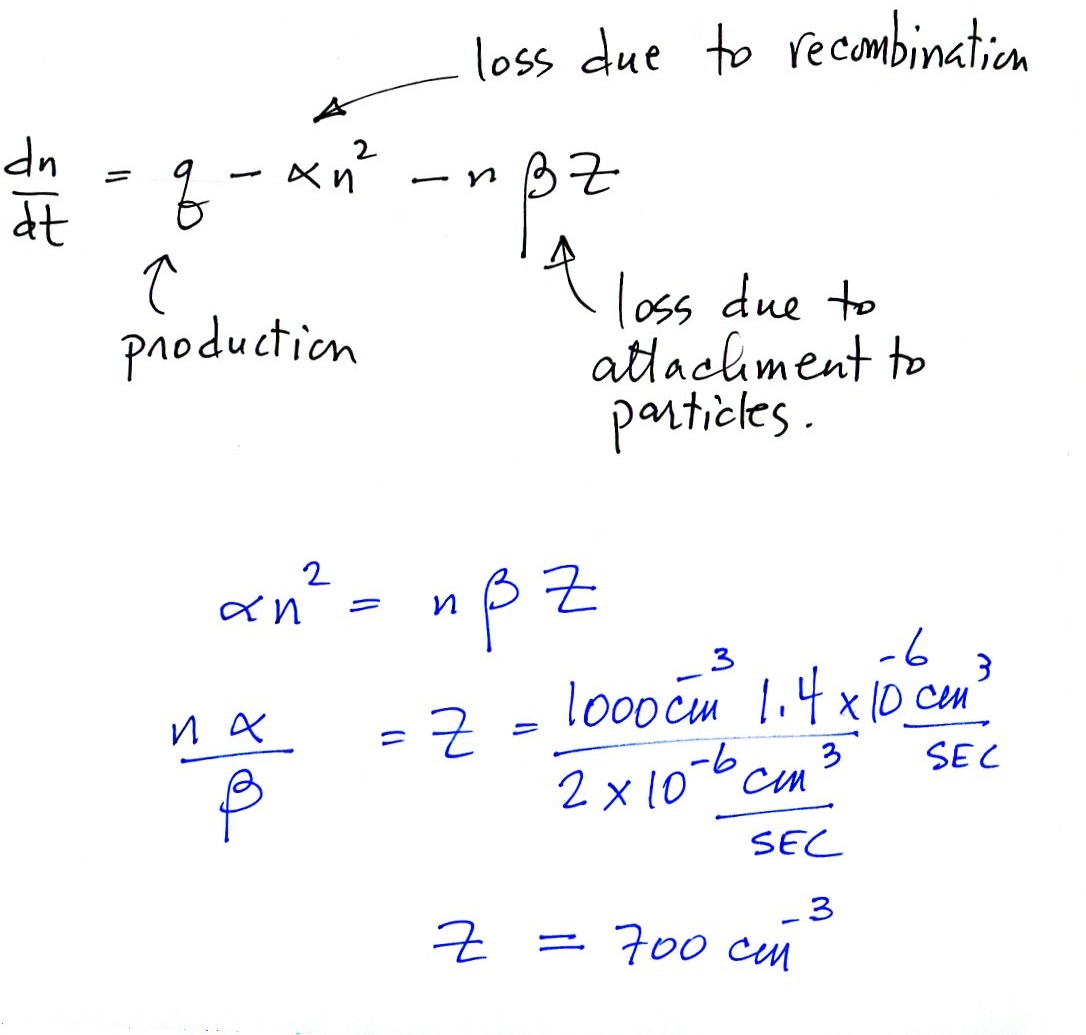 loss due to recombination
dn/dt = q - αn² - nβZ
production
loss due to
attachment to
particles.
αn² = nβZ
nα/β = Z = 1000 cm⁻³ 1.4 x 10⁻⁶ cm³/SEC / 2 x 10⁻⁶ cm³/SEC
Z = 700 cm⁻³